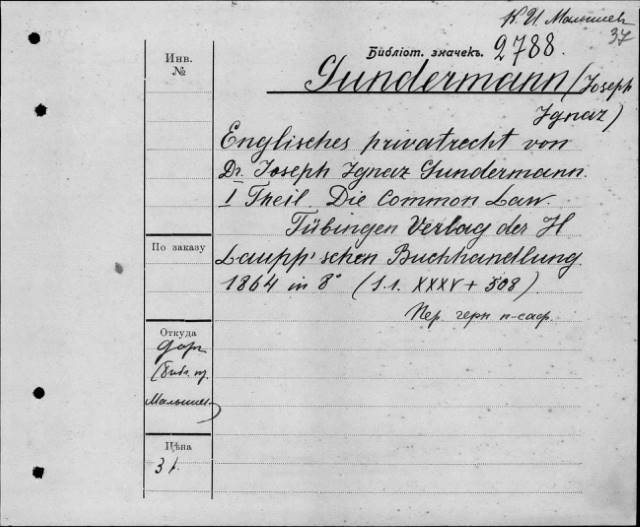 К. И Малышев
37
Библіот. значекъ. 2788.
Инв.
№
Gundermann (Joseph
Ignaz)
Englisches privatrecht von
Dr. Joseph Ignaz Gundermann.
I Theil. Die Common Law.
Tübingen Verlag der H
По заказу
Laupp'schen Buchhandlung
1864 in 8° (1.1. XXXV + 508)
Пер. черн
Откуда
дар
(библ. пр.
Малышев)
Цѣна
3